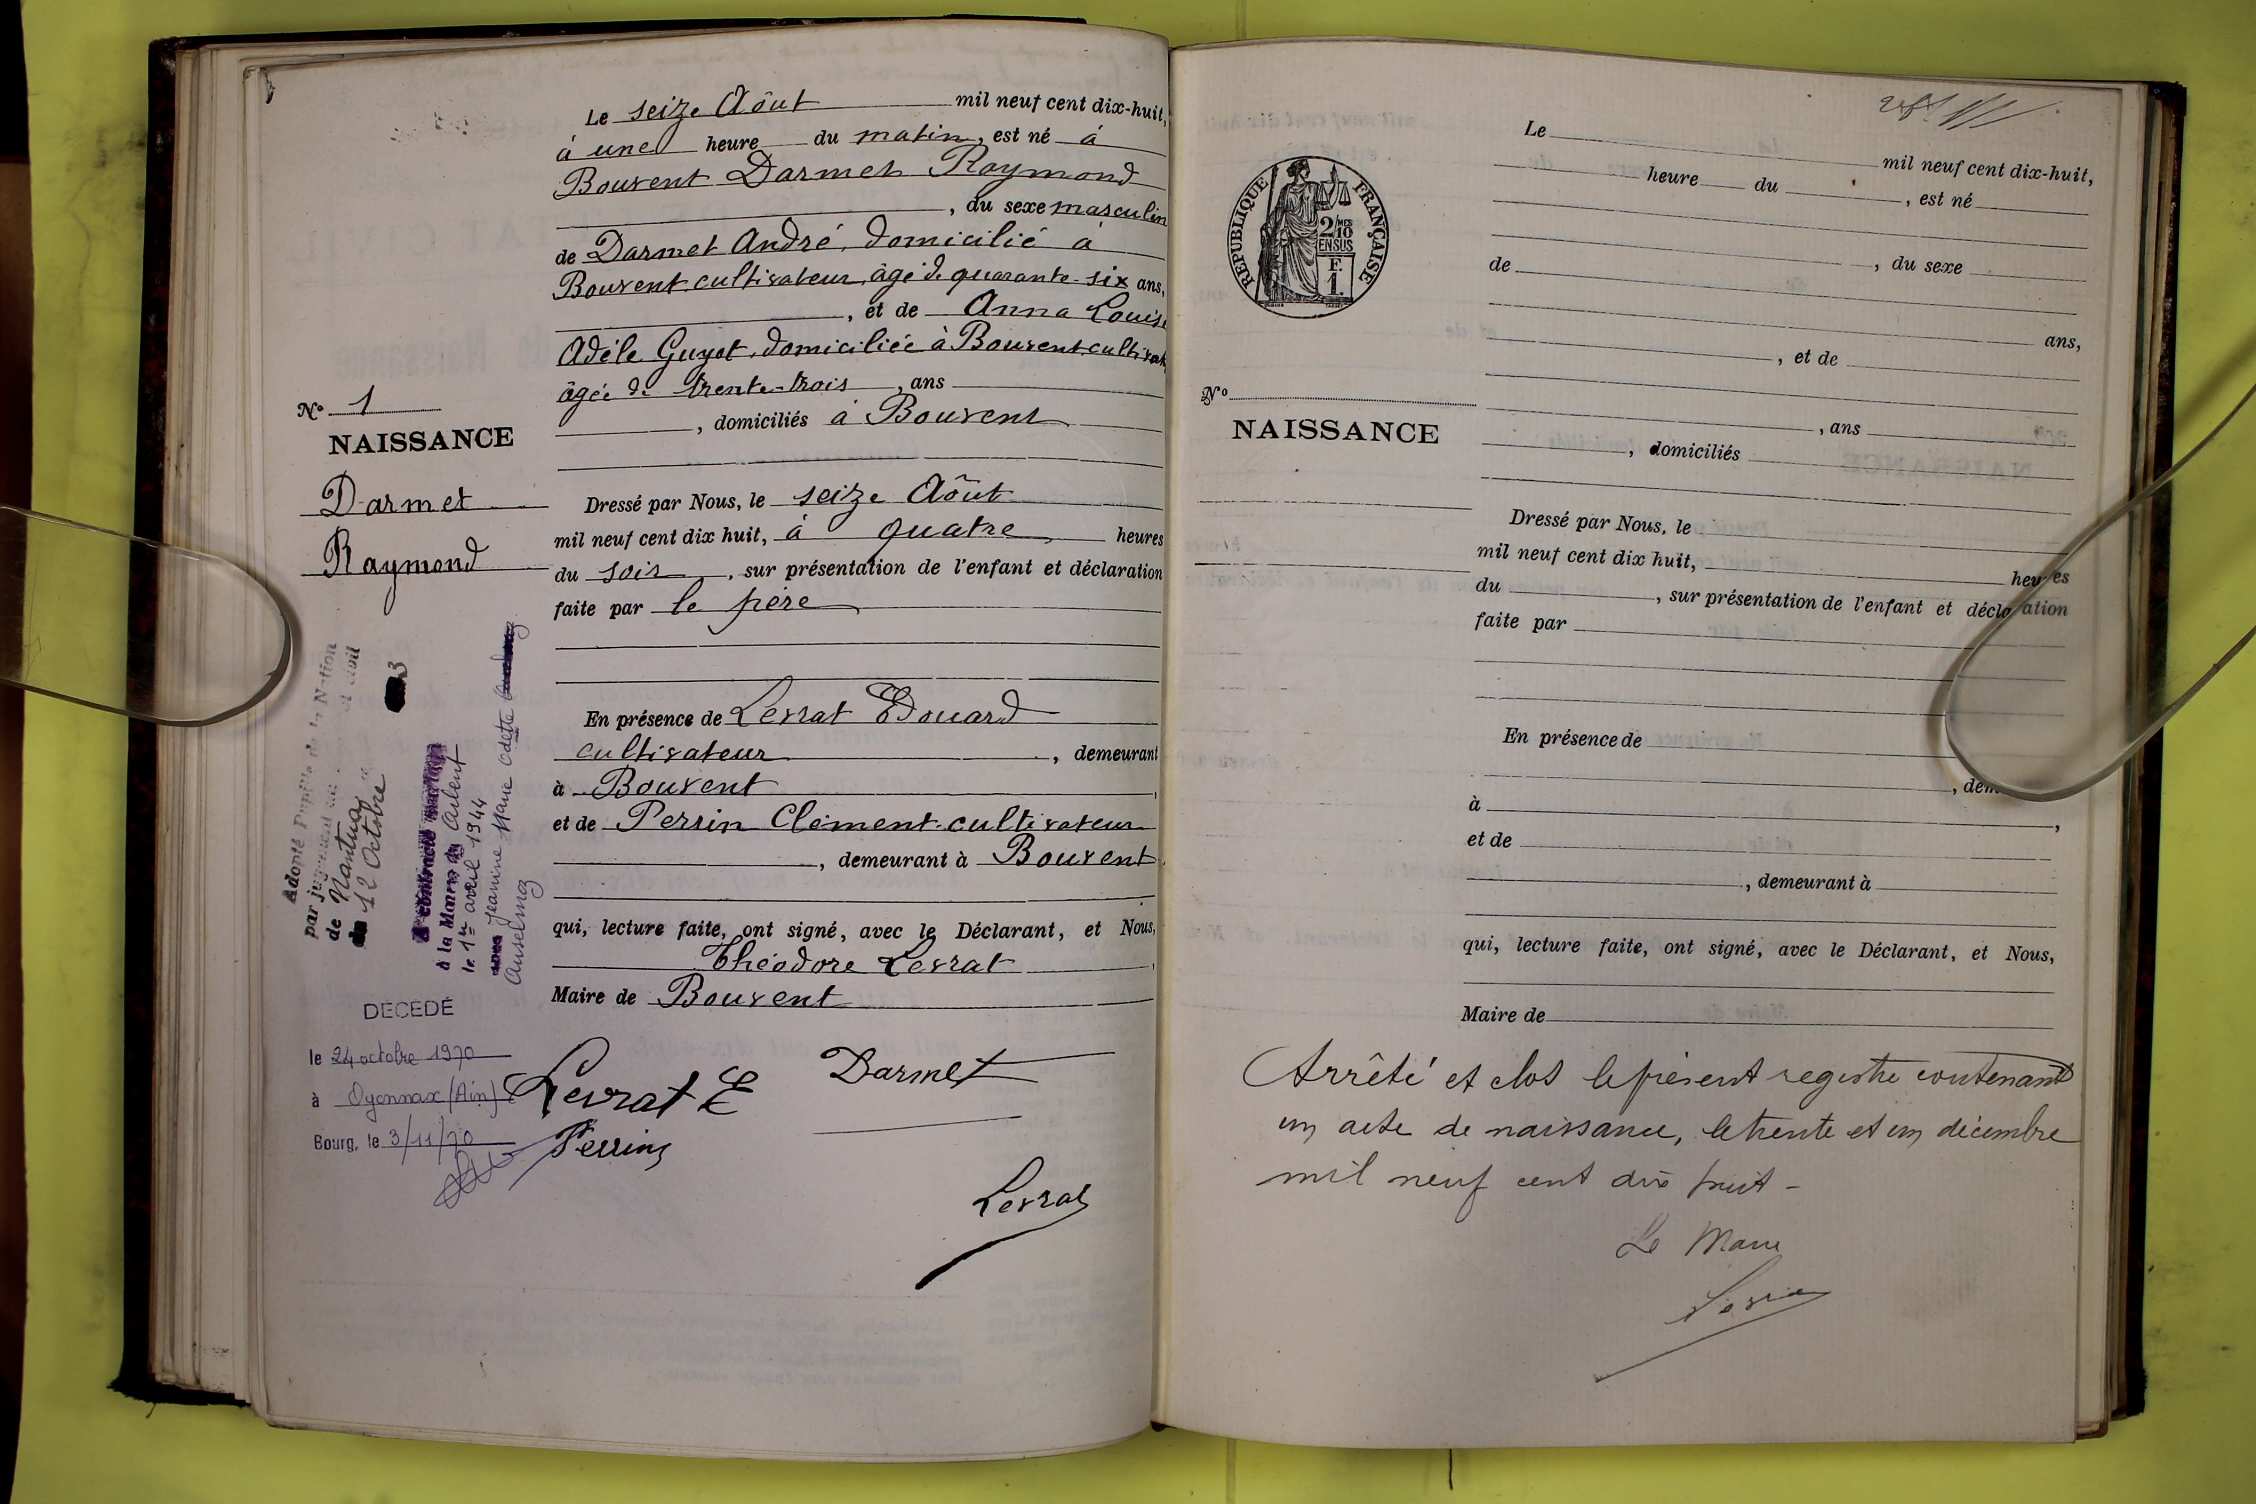 Le seize Août mil neuf cent dix-huit,
à une heure du matin, est né à
Bouvent Darmet Raymond
, du sexe masculin
de Darmet André, domicilié à
Bouvent cultivateur, âgé de quarante-six ans,
, et de Anna Louise
Adèle Guyot, domiciliée à Bouvent
âgée de trente-trois, ans
, domiciliés à Bouvent
N° 1
NAISSANCE
Darmet
Raymond
Dressé par Nous, le seize Août
mil neuf cent dix huit, à quatre heures
du soir, sur présentation de l'enfant et déclaration
faite par le père
En présence de Levrat Edouard
cultivateur, demeurant
à Bouvent,
et de Perrin Clément cultivateur
, demeurant à Bouvent
qui, lecture faite, ont signé, avec le Déclarant, et Nous,
Théodore Levrat,
Maire de Bouvent
Levrat E
Darmet
Perrin
Levrat
Adopté Pupille de la Nation
par jugement
de Nantua
12 Octobre
3
contracté
à la Mairie
le 1er avril 1944
Jeanine Marie Odette
DÉCÉDÉ
le 24 octobre 1970
à Oyonnax (Ain)
Bourg, le 3/11/70
RÉPUBLIQUE FRANÇAISE
2/10 MES
EN SUS
F.
1.
Le mil neuf cent dix-huit,
heure du , est né
, du sexe
de
ans,
, et de
, ans
, domiciliés
N°
NAISSANCE
Dressé par Nous, le
mil neuf cent dix huit, heures
du , sur présentation de l'enfant et déclaration
faite par
En présence de
, dem
à ,
et de
, demeurant à
qui, lecture faite, ont signé, avec le Déclarant, et Nous,
Maire de
Arrêté et clos le présent registre contenant
un acte de naissance, le trente et un décembre
mil neuf cent dix huit -
Le Maire